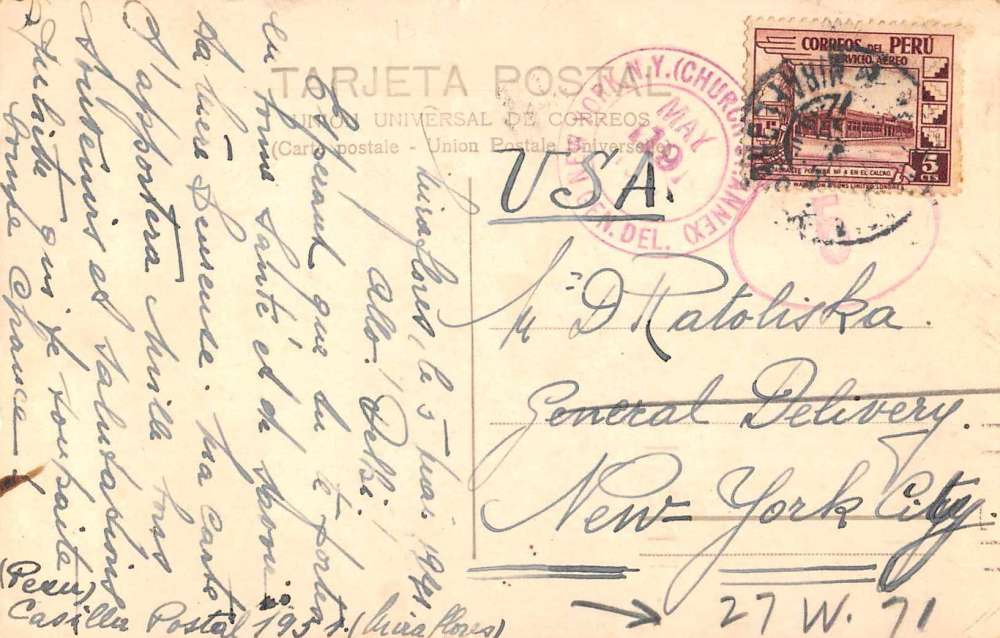 TARJETA POSTAL
UNION UNIVERSAL DE CORREOS
(Carte postale - Union Postale Universelle)
CORREOS DEL PERÚ
SERVICIO AEREO
5
CTS
NEW YORK, N.Y. (CHURCH ST. ANNEX)
GEN. DEL.
MAY
19
USA.
Mr D Ratoliska
General Delivery
New York City
27 W. 71
Miraflores, le 5 Mai 1941
Allo!
Espérant que tu te portes
en bonne santé et de
ta mère. Ma Carte
t'apportera mille bons
Souvenirs et Salutations
je souhaite
Bonne Chance
(Peru)
Casilla Postal 195 (Miraflores)